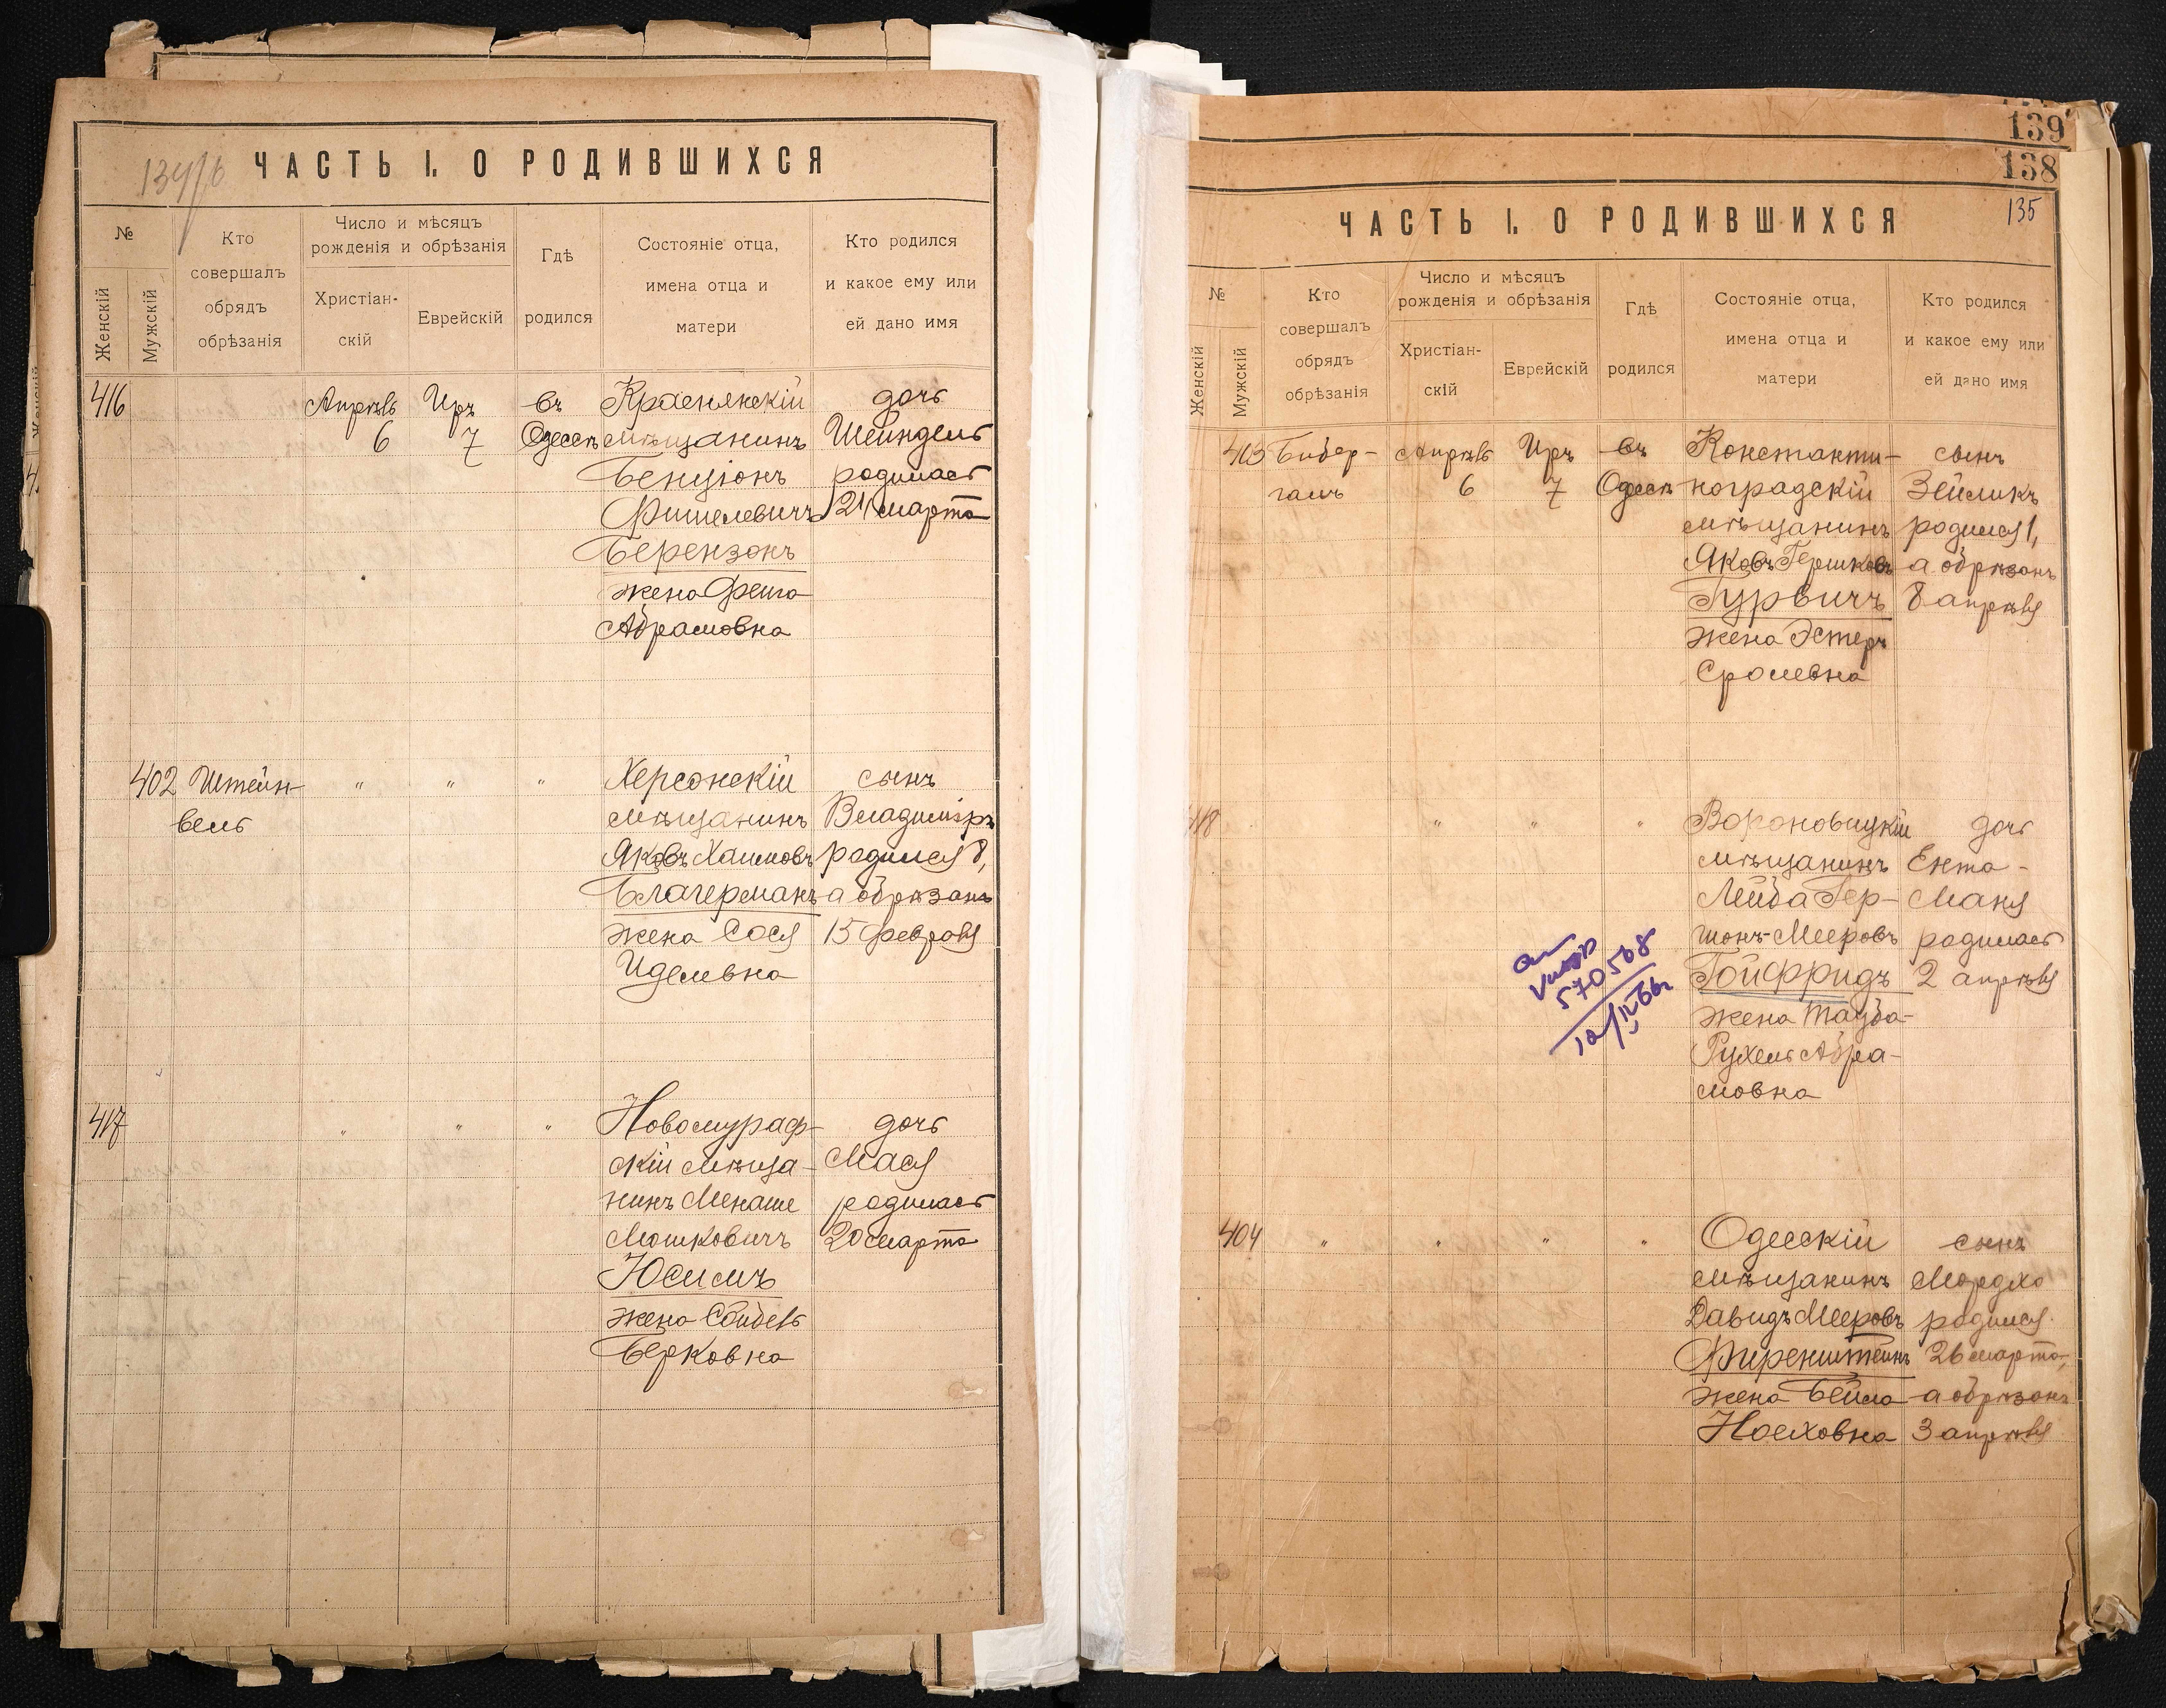 134/б
ЧАСТЬ I. О РОДИВШИХСЯ
№
Женскій
Мужскій
Кто
совершалъ
обрядъ
обрѣзанія
Число и мѣсяцъ
рожденія и обрѣзанія
Христіан-
скій
Еврейскій
Гдѣ
родился
Состояніе отца,
имена отца и
матери
Кто родился
и какое ему или
ей дано имя
416 Апрѣль Иръ въ Краснянскій дочь
6 7 Одессѣ мѣщанинъ Шейндель
Бенціонъ родилась
Фишелевичъ 21 марта
Берензонъ
жена Фейга
Абрамовна
402 Штейн- " " " Херсонскій сынъ
вель мѣщанинъ Владиміръ
Яковъ Хаимовъ родился 8,
Благерманъ а обрѣзанъ
жена Сося 15 февраля
Иделевна
417 " " " Новомураф- дочь
скій мѣща- Мася
нинъ Менаше родилась
Мошковичъ 20 марта
Юсимъ
жена
Берковна
139
138
135
ЧАСТЬ I. О РОДИВШИХСЯ
№
Женскій
Мужскій
Кто
совершалъ
обрядъ
обрѣзанія
Число и мѣсяцъ
рожденія и обрѣзанія
Христіан-
скій
Еврейскій
Гдѣ
родился
Состояніе отца,
имена отца и
матери
Кто родился
и какое ему или
ей дано имя
403 Бибер- Апрѣль Иръ въ Константи- сынъ
галь 6 7 Одессѣ ноградскій Зейликъ
мѣщанинъ родился 1,
Яковъ Гершковъ а обрѣзанъ
Гурвичъ 8 апрѣля
жена Эстеръ
Сролевна
418 " " " Вороновицкій дочь
мѣщанинъ Ента-
Лейба Гер- Маня
шонъ-Мееровъ родилась
Гойфридъ 2 апрѣля
жена Тауба-
Рухель Абра-
мовна
570508
404 " " " " Одесскій сынъ
мѣщанинъ Мордхо
Давидъ Мееровъ родился
Фиренштейнъ 26 марта,
жена Бейла а обрѣзанъ
Ноеховна 3 апрѣля